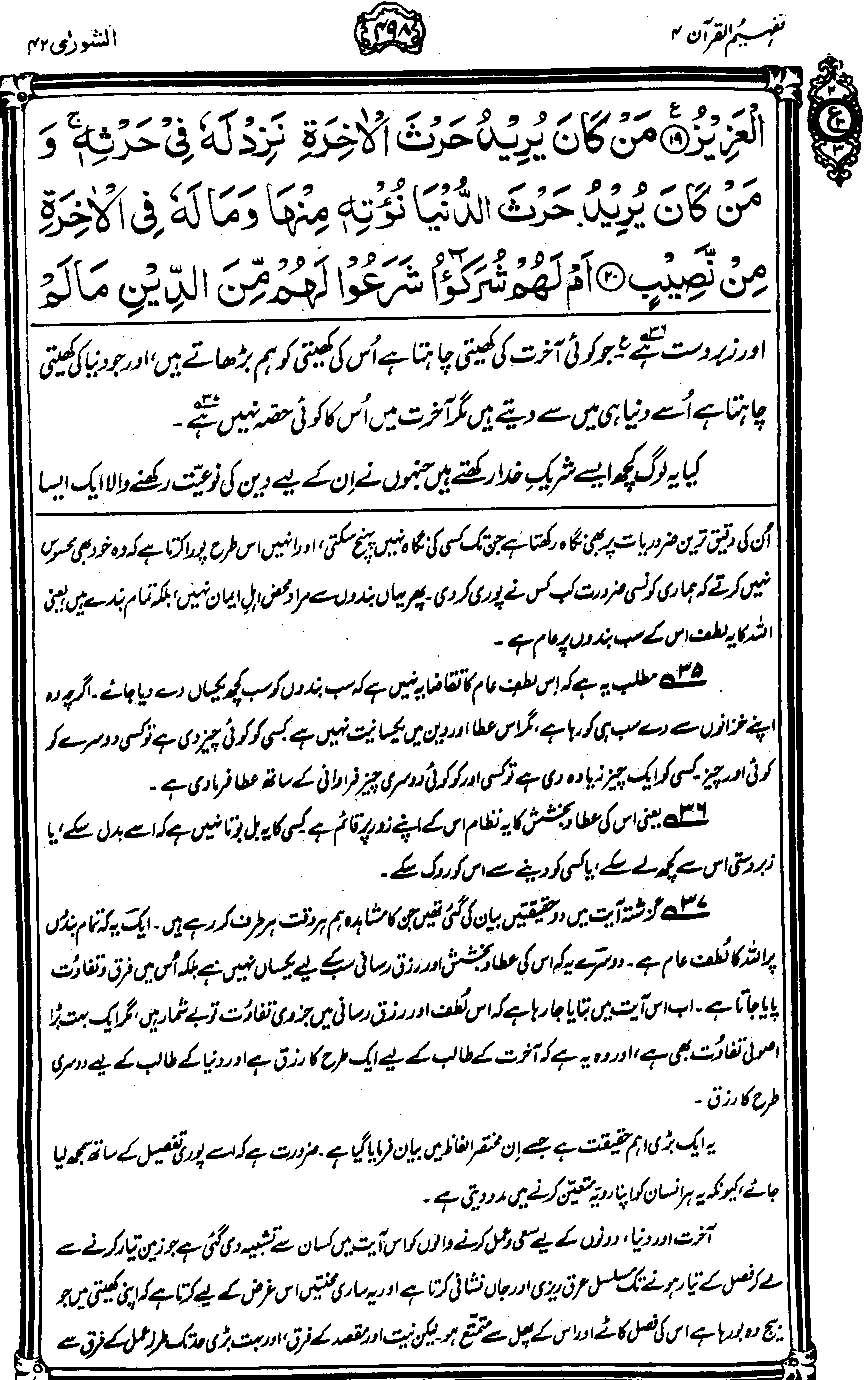 تفہیم القرآن ۴
۴۹۸
الشورٰی ۴۲
الْعَزِيْزُ ﴿۱۹﴾ ع مَنْ كَانَ يُرِيْدُ حَرْثَ الْاٰخِرَةِ نَزِدْ لَهٗ فِيْ حَرْثِهٖ ۚ وَ
مَنْ كَانَ يُرِيْدُ حَرْثَ الدُّنْيَا نُؤْتِهٖ مِنْهَا وَمَا لَهٗ فِي الْاٰخِرَةِ
مِنْ نَّصِيْبٍ ﴿۲۰﴾ اَمْ لَهُمْ شُرَكٰٓؤُا شَرَعُوْا لَهُمْ مِّنَ الدِّيْنِ مَا لَمْ
اور زبردست ہے۳۶؎ ع جو کوئی آخرت کی کھیتی چاہتا ہے اُس کی کھیتی کو ہم بڑھاتے ہیں، اور جو دنیا کی کھیتی
چاہتا ہے اُسے دنیا ہی میں سے دیتے ہیں مگر آخرت میں اُس کا کوئی حصّہ نہیں ہے۳۷؎۔
کیا یہ لوگ کچھ ایسے شریکِ خدا رکھتے ہیں جنہوں نے اِن کے لیے دین کی نوعیّت رکھنے والا ایک ایسا
اُن کی دقیق ترین ضروریات پر بھی نگاہ رکھتا ہے جن تک کسی کی نگاہ نہیں پہنچ سکتی، اور انہیں اس طرح پورا کرتا ہے کہ وہ خود بھی محسوس
نہیں کرتے کہ ہماری کونسی ضرورت کب کس نے پوری کر دی۔ پھر یہاں بندوں سے مراد محض اہلِ ایمان نہیں، بلکہ تمام بندے ہیں، یعنی
اللہ کا یہ لطف اس کے سب بندوں پر عام ہے۔
۳۵؎ مطلب یہ ہے کہ اس لطفِ عام کا تقاضا یہ نہیں ہے کہ سب بندوں کو سب کچھ یکساں دے دیا جائے۔ اگرچہ وہ
اپنے خزانوں سے دے سب ہی کو رہا ہے، مگر اس عطا اور دین میں یکسانیت نہیں ہے۔ کسی کو کوئی چیز دی ہے تو کسی دوسرے کو
کوئی اور چیز۔ کسی کو ایک چیز زیادہ دی ہے تو کسی اور کو کوئی دوسری چیز فراوانی کے ساتھ عطا فرما دی ہے۔
۳۶؎ یعنی اس کی عطا و بخشش کا یہ نظام اس کے اپنے زور پر قائم ہے۔ کسی کا یہ بل بوتا نہیں ہے کہ اسے بدل سکے، یا
زبردستی اس سے کچھ لے سکے، یا کسی کو دینے سے اس کو روک سکے۔
۳۷؎ گزشتہ آیت میں دو حقیقتیں بیان کی گئی تھیں جن کا مشاہدہ ہم ہر وقت ہر طرف کر رہے ہیں۔ ایک یہ کہ تمام بندوں
پر اللہ کا لُطف عام ہے۔ دوسرے یہ کہ اس کی عطا و بخشش اور رزق رسانی سب کے لیے یکساں نہیں ہے بلکہ اُس میں فرق و تفاوُت
پایا جاتا ہے۔ اب اس آیت میں بتایا جا رہا ہے کہ اس لُطف اور رزق رسانی میں جزوی تفاوُت تو بے شمار ہیں، مگر ایک بہت بڑا
اصولی تفاوُت بھی ہے، اور وہ یہ ہے کہ آخرت کے طالب کے لیے ایک طرح کا رزق ہے اور دنیا کے طالب کے لیے دوسری
طرح کا رزق۔
یہ ایک بڑی اہم حقیقت ہے جسے اِن مختصر الفاظ میں بیان فرمایا گیا ہے۔ ضرورت ہے کہ اسے پوری تفصیل کے ساتھ سمجھ لیا
جائے، کیونکہ یہ ہر انسان کو اپنا رویّہ متعیّن کرنے میں مدد دیتی ہے۔
آخرت اور دنیا، دونوں کے لیے سعی و عمل کرنے والوں کو اس آیت میں کسان سے تشبیہ دی گئی ہے جو زمین تیار کرنے سے
لے کر فصل کے تیار ہونے تک مسلسل عرق ریزی اور جاں فشانی کرتا ہے اور یہ ساری محنتیں اس غرض کے لیے کرتا ہے کہ اپنی کھیتی میں جو
بیج وہ بو رہا ہے اس کی فصل کاٹے اور اس کے پھل سے متمتّع ہو۔ لیکن نیت اور مقصد کے فرق، اور بہت بڑی حد تک طرزِ عمل کے فرق سے